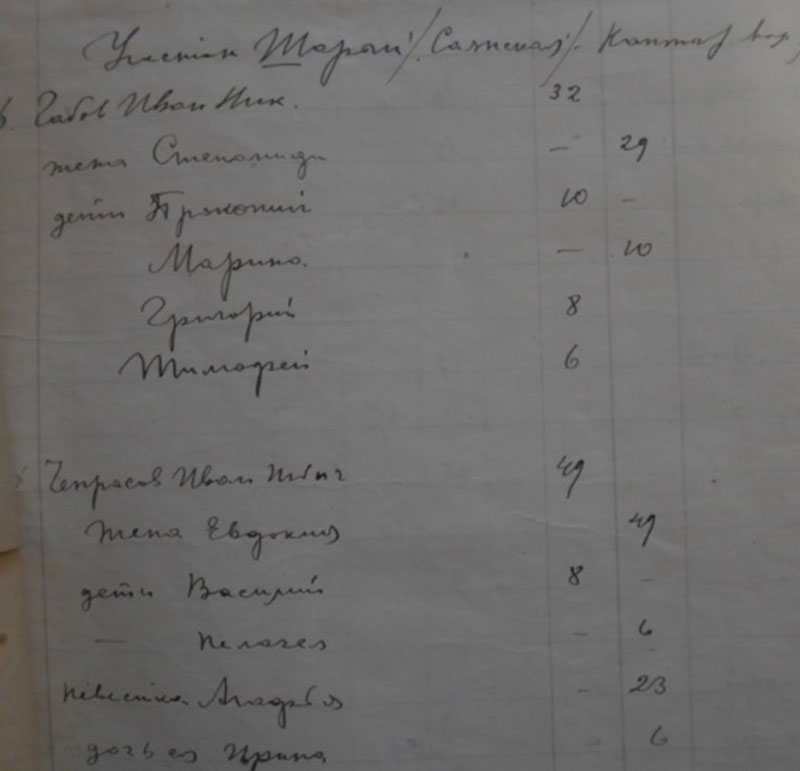 Участок Шарай /Саянская/.
Иван Ник. 32
жена Степанида — 29
дети Прокопий 10 —
Марина — 10
Григорий 8
Тимофей 6
Чепрасов Иван 49
жена Евдокия 49
дети Василий 8 —
— Пелагея — 6
невестка Агафья — 23
дочь ея Ирина — 6